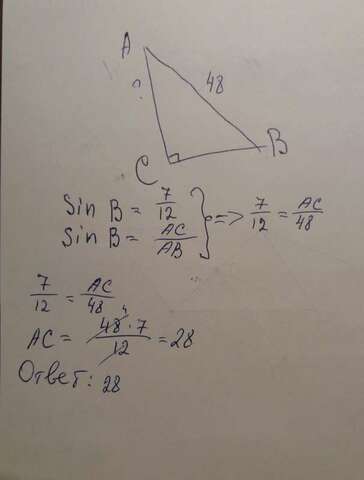 A
48
?
C
B
Sin B = 7/12
Sin B = AC/AB
} => 7/12 = AC/48
7/12 = AC/48
AC = 48 4 · 7/12 = 28
Ответ: 28